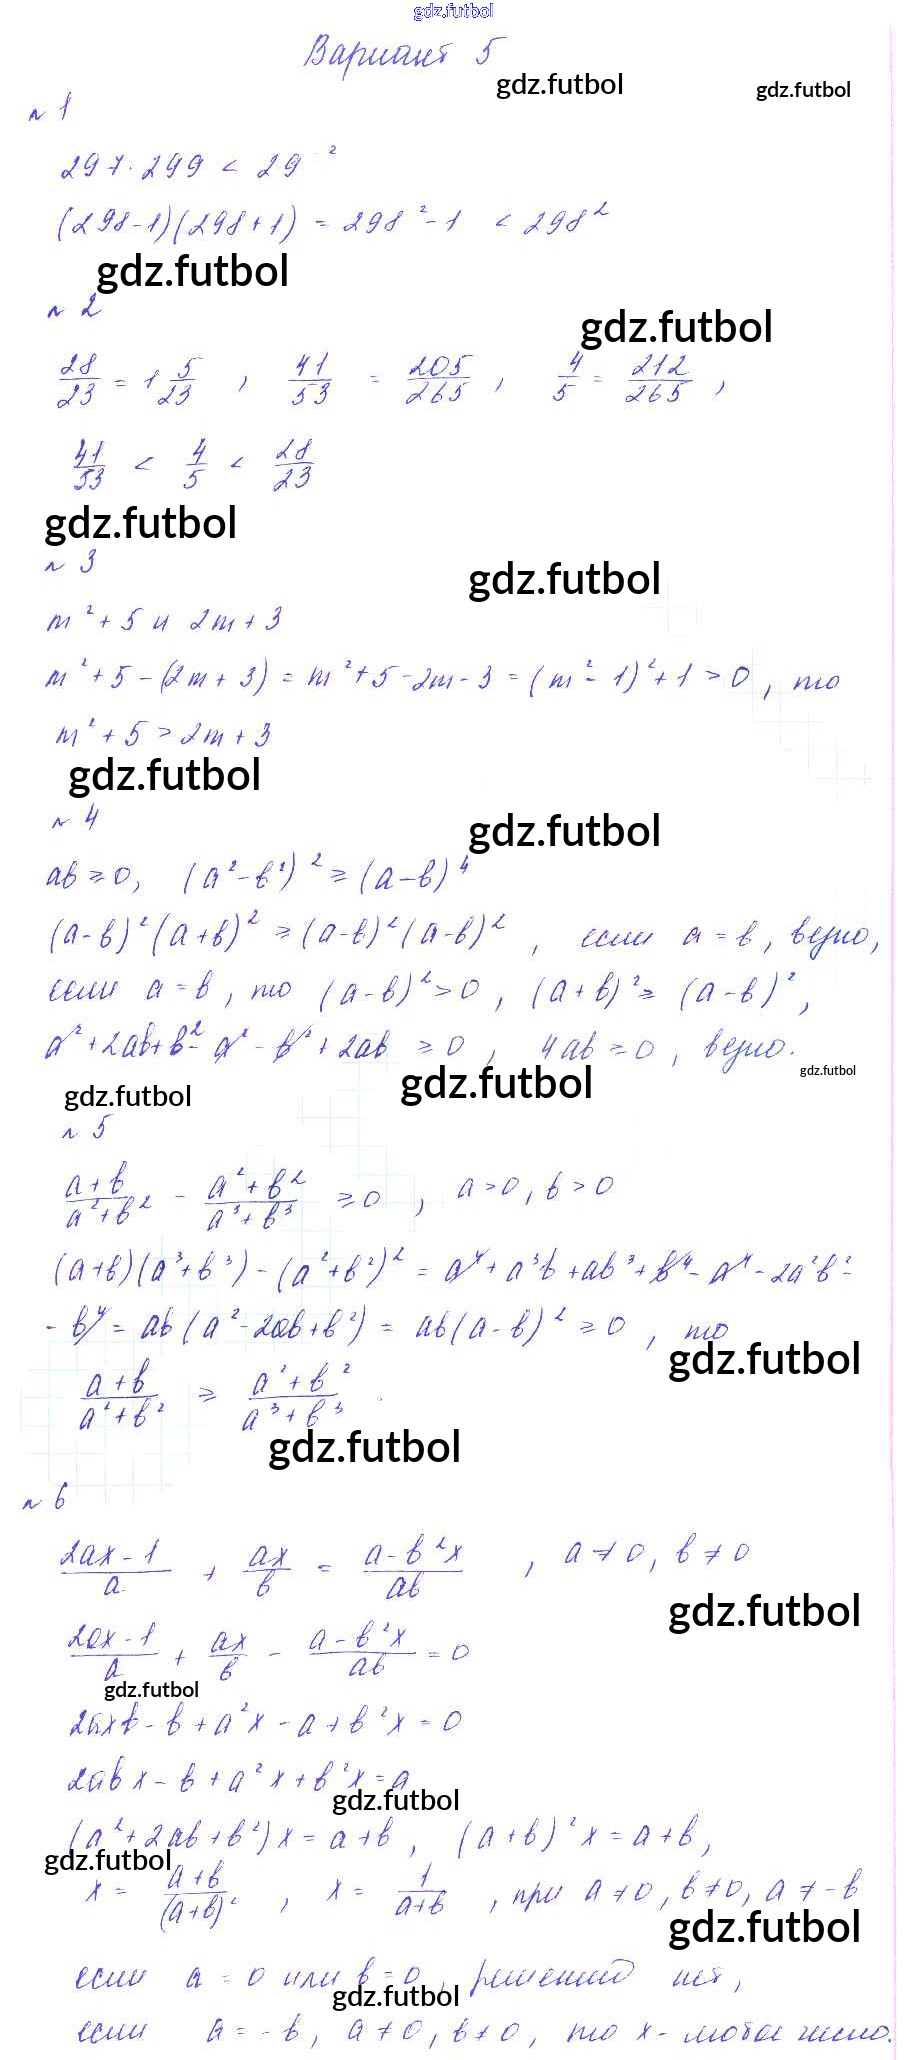 gdz.futbol
Вариант 5
gdz.futbol gdz.futbol
№ 1
297·299 < 29 ²
(298-1)(298+1) = 298²-1 < 298²
gdz.futbol
№ 2
gdz.futbol
28/23 = 1 5/23 , 41/53 = 205/265 , 4/5 = 212/265 ,
41/53 < 4/5 < 28/23
gdz.futbol
№ 3
gdz.futbol
m²+5 и 2m+3
m²+5-(2m+3) = m²+5-2m-3 = (m²-1)²+1 > 0 , то
m²+5 > 2m+3
gdz.futbol
№ 4
gdz.futbol
ab ≥ 0, (a²-b²)² ≥ (a-b)⁴
(a-b)²(a+b)² ≥ (a-b)²(a-b)² , если a = b, верно,
если a = b, то (a-b)² > 0, (a+b)² ≥ (a-b)²,
a²+2ab+b²-a²-b²+2ab ≥ 0 , 4ab ≥ 0 , верно.
gdz.futbol gdz.futbol gdz.futbol
№ 5
(a+b)/(a²+b²) - (a²+b²)/(a³+b³) ≥ 0 , a > 0, b > 0
(a+b)(a³+b³)-(a²+b²)² = a⁴+a³b+ab³+b⁴-a⁴-2a²b²-
-b⁴ = ab(a²-2ab+b²) = ab(a-b)² ≥ 0 , то
gdz.futbol
(a+b)/(a²+b²) ≥ (a²+b²)/(a³+b³) .
gdz.futbol
№ 6
(2ax-1)/a + ax/b = (a-b²x)/ab , a ≠ 0, b ≠ 0
gdz.futbol
(2ax-1)/a + ax/b - (a-b²x)/ab = 0
gdz.futbol
2axb-b+a²x-a+b²x = 0
2abx-b+a²x+b²x = a
gdz.futbol
(a²+2ab+b²)x = a+b , (a+b)²x = a+b,
gdz.futbol
x = (a+b)/(a+b)² , x = 1/(a+b) , при a ≠ 0, b ≠ 0, a ≠ -b
gdz.futbol
если a = 0 или b = 0, решений нет,
gdz.futbol
если a = -b, a ≠ 0, b ≠ 0, то x - любое число.